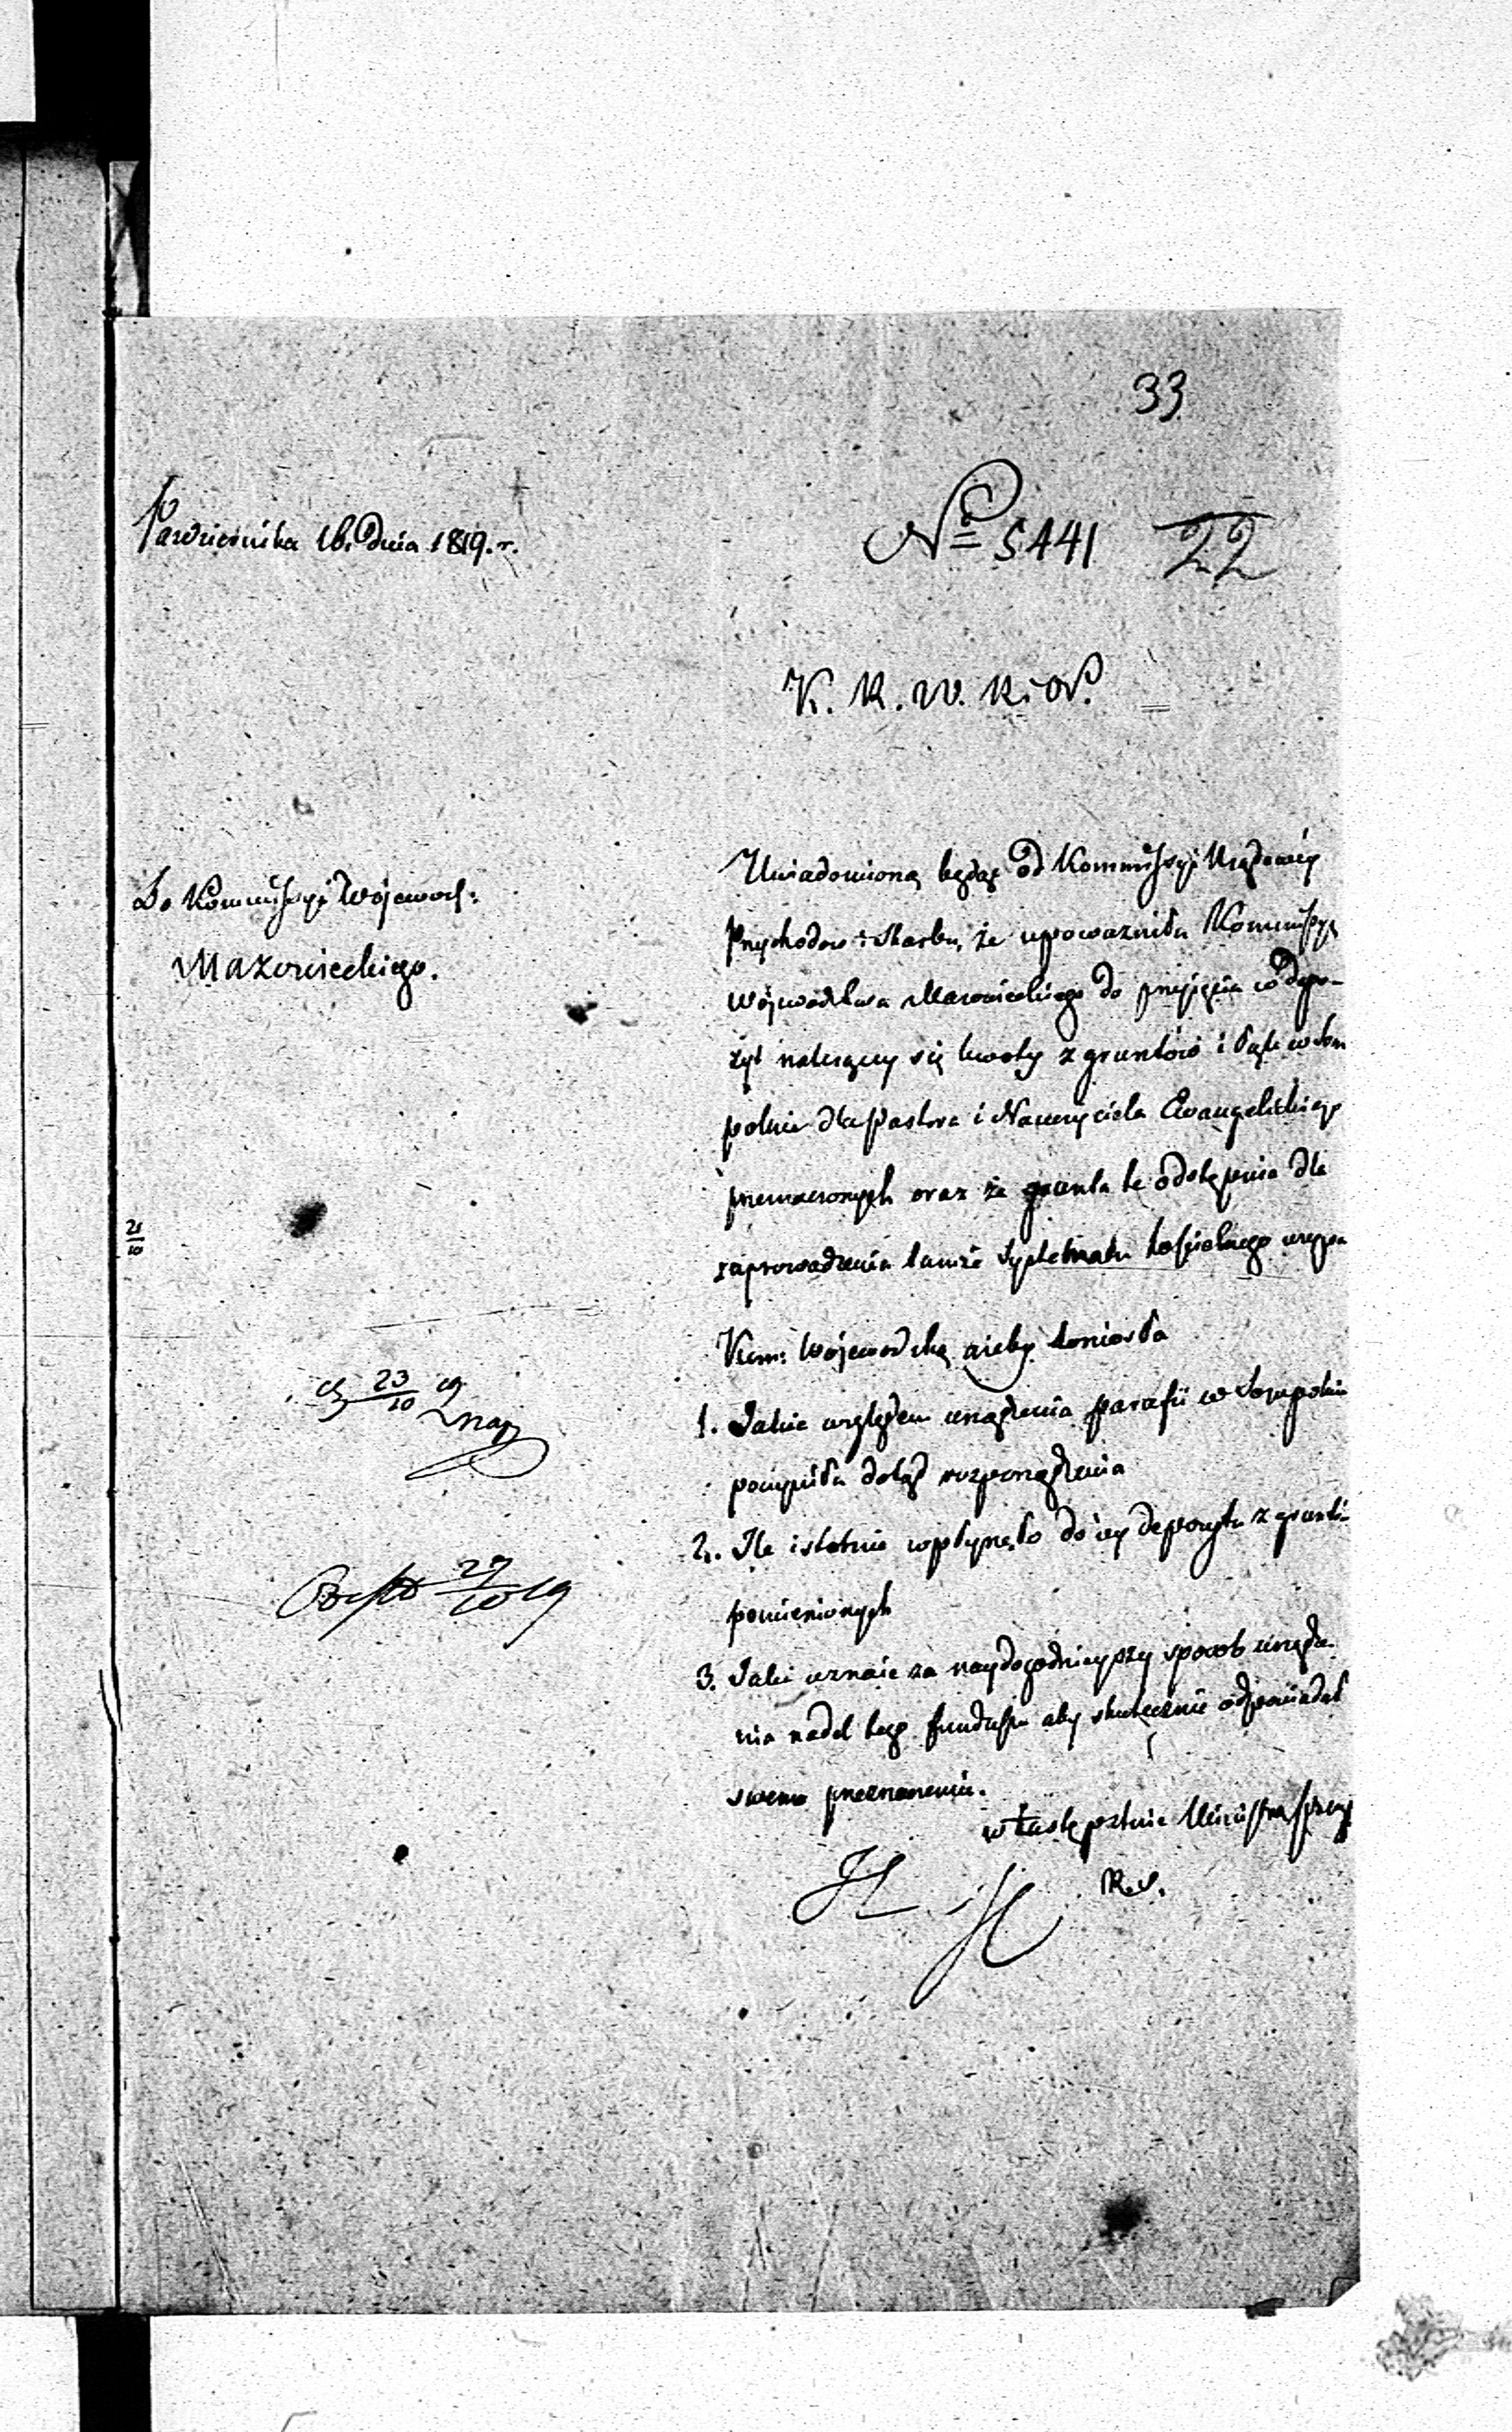 33
Października 16. Dnia 1819. r.
No 5441 22
K. R. W. R. i O. P.
Do Kommissyi Wojewod:
Mazowieckiego.
Uwiadomioną będąc od Kommissyi Rządowéy
Przychodow i Skarbu, że upoważniła Kommissyą
Wojewodztwa Mazowieckiego do przyięcia w depo-
zyt należącey się kwoty z gruntów i łąk w Som
polnie dla Pastora i Nauczyciela Ewangelickiego
przeznaczonych oraz że grunta te odstępuie dla
zaprowadzenia tamże systematu kościelnego wzywa
Kom: Wojewodzką ażeby doniosła
1. Jakie względem urządzenia parafii w Sompolnie
poczyniła dotąd rozporządzenia
2. Ile istotnie wpłynęło do iey depozytu z gruntó
pomienionych
3. Jaki uznaie za naydogodnieyszy sposob urządze-
nia nadal tego funduszu aby skutecznie odpowiadał
swemu przeznaczeniu.
w Zastępstwie Ministra Prezy
R. S.
21/10
23/10 19
27/10 19